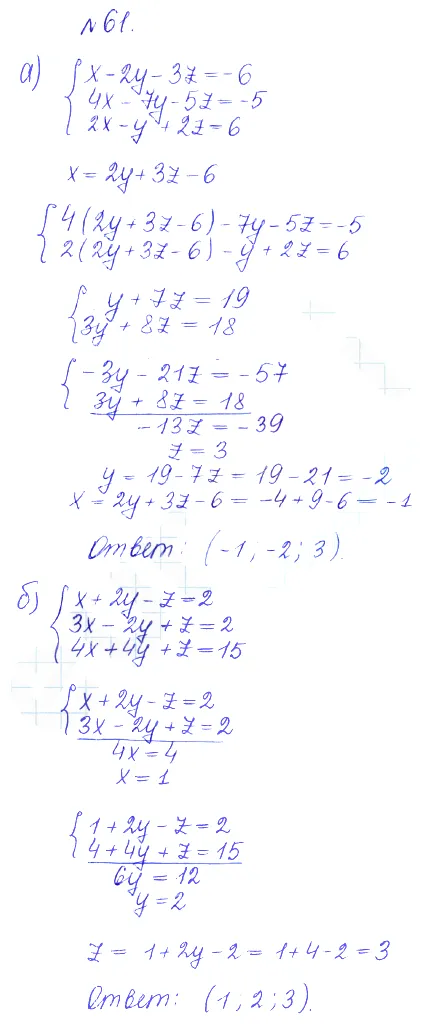 №61.
а) { x - 2y - 3z = -6
4x - 7y - 5z = -5
2x - y + 2z = 6
x = 2y + 3z - 6
{ 4(2y + 3z - 6) - 7y - 5z = -5
2(2y + 3z - 6) - y + 2z = 6
{ y + 7z = 19
3y + 8z = 18
{ -3y - 21z = -57
3y + 8z = 18
-13z = -39
z = 3
y = 19 - 7z = 19 - 21 = -2
x = 2y + 3z - 6 = -4 + 9 - 6 = -1
Ответ: (-1; -2; 3).
б) { x + 2y - z = 2
3x - 2y + z = 2
4x + 4y + z = 15
{ x + 2y - z = 2
3x - 2y + z = 2
4x = 4
x = 1
{ 1 + 2y - z = 2
4 + 4y + z = 15
6y = 12
y = 2
z = 1 + 2y - 2 = 1 + 4 - 2 = 3
Ответ: (1; 2; 3).